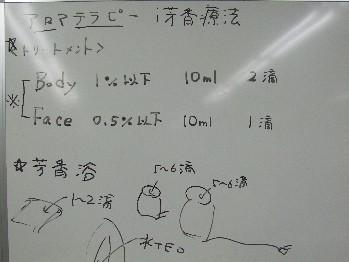 アロマテラピー 芳香療法
☆トリートメント>
※ Body 1%以下 10ml 2滴
Face 0.5%以下 10ml 1滴
☆芳香浴
1~2滴 5~6滴 5~6滴
水+EO